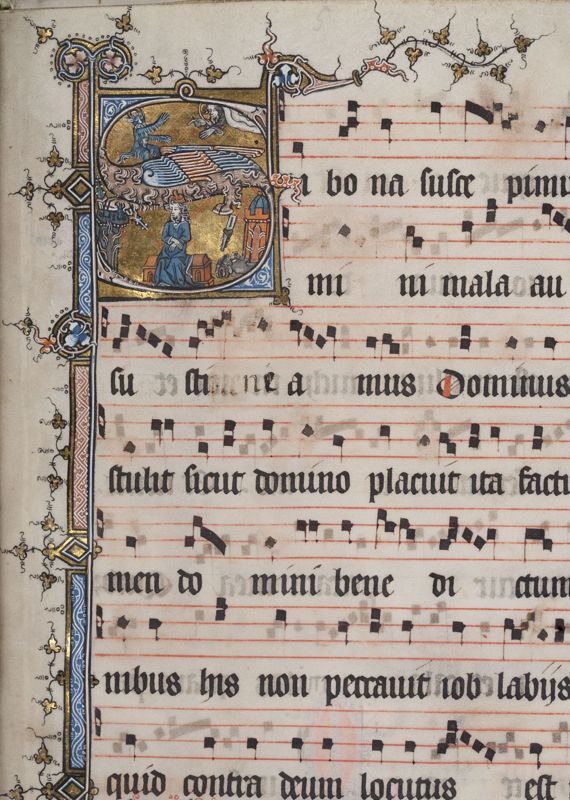 Si bo na susce pimu
mi ni mala au
su sti ne a mus Dominus
stulit sicut domino placuit ita factu
men do mini bene di ctum
nibus his non peccauit iob labijs
quid contra deum locutus est